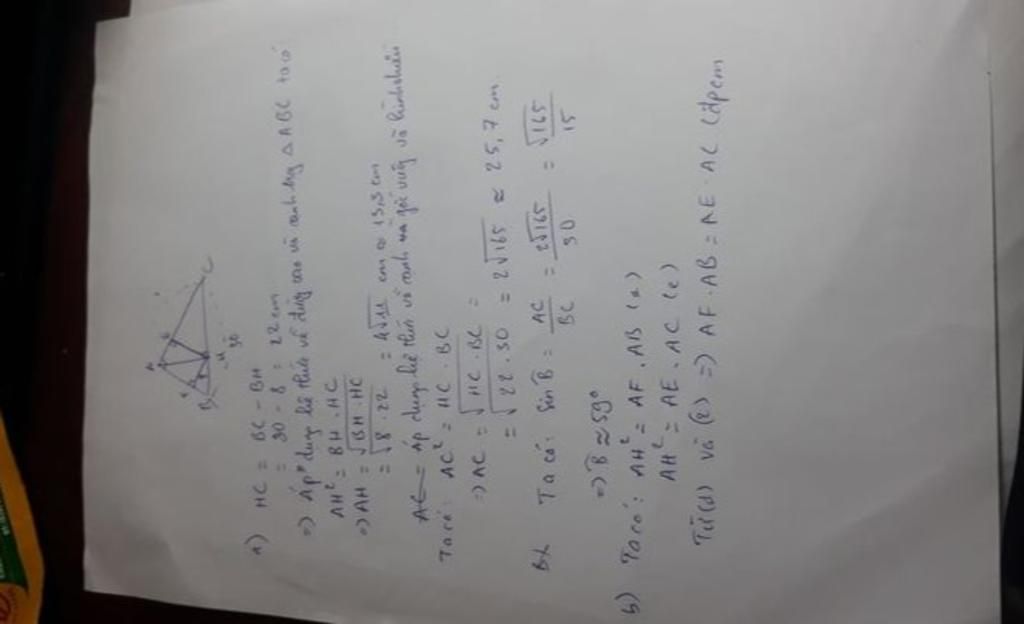 A
B
H
C
30
a) HC = BC - BH
= 30 - 8 = 22 cm
=> Áp dụng hệ thức về đường cao và cạnh trong △ABC ta có
AH² = BH . HC
=> AH = √BH . HC
= √8 . 22 = 4√11 cm ≈ 13,3 cm
AC = Áp dụng hệ thức về cạnh và góc vuông và hình chiếu
Ta có: AC² = HC . BC
=> AC = √HC . BC =
= √22 . 30 = 2√165 ≈ 25,7 cm
Ta có: Sin B̂ = AC/BC = 2√165/30 = √165/15
=> B̂ ≈ 59°
b) Ta có: AH² = AF . AB (1)
AH² = AE . AC (2)
Từ (1) và (2) => AF . AB = AE . AC (đpcm